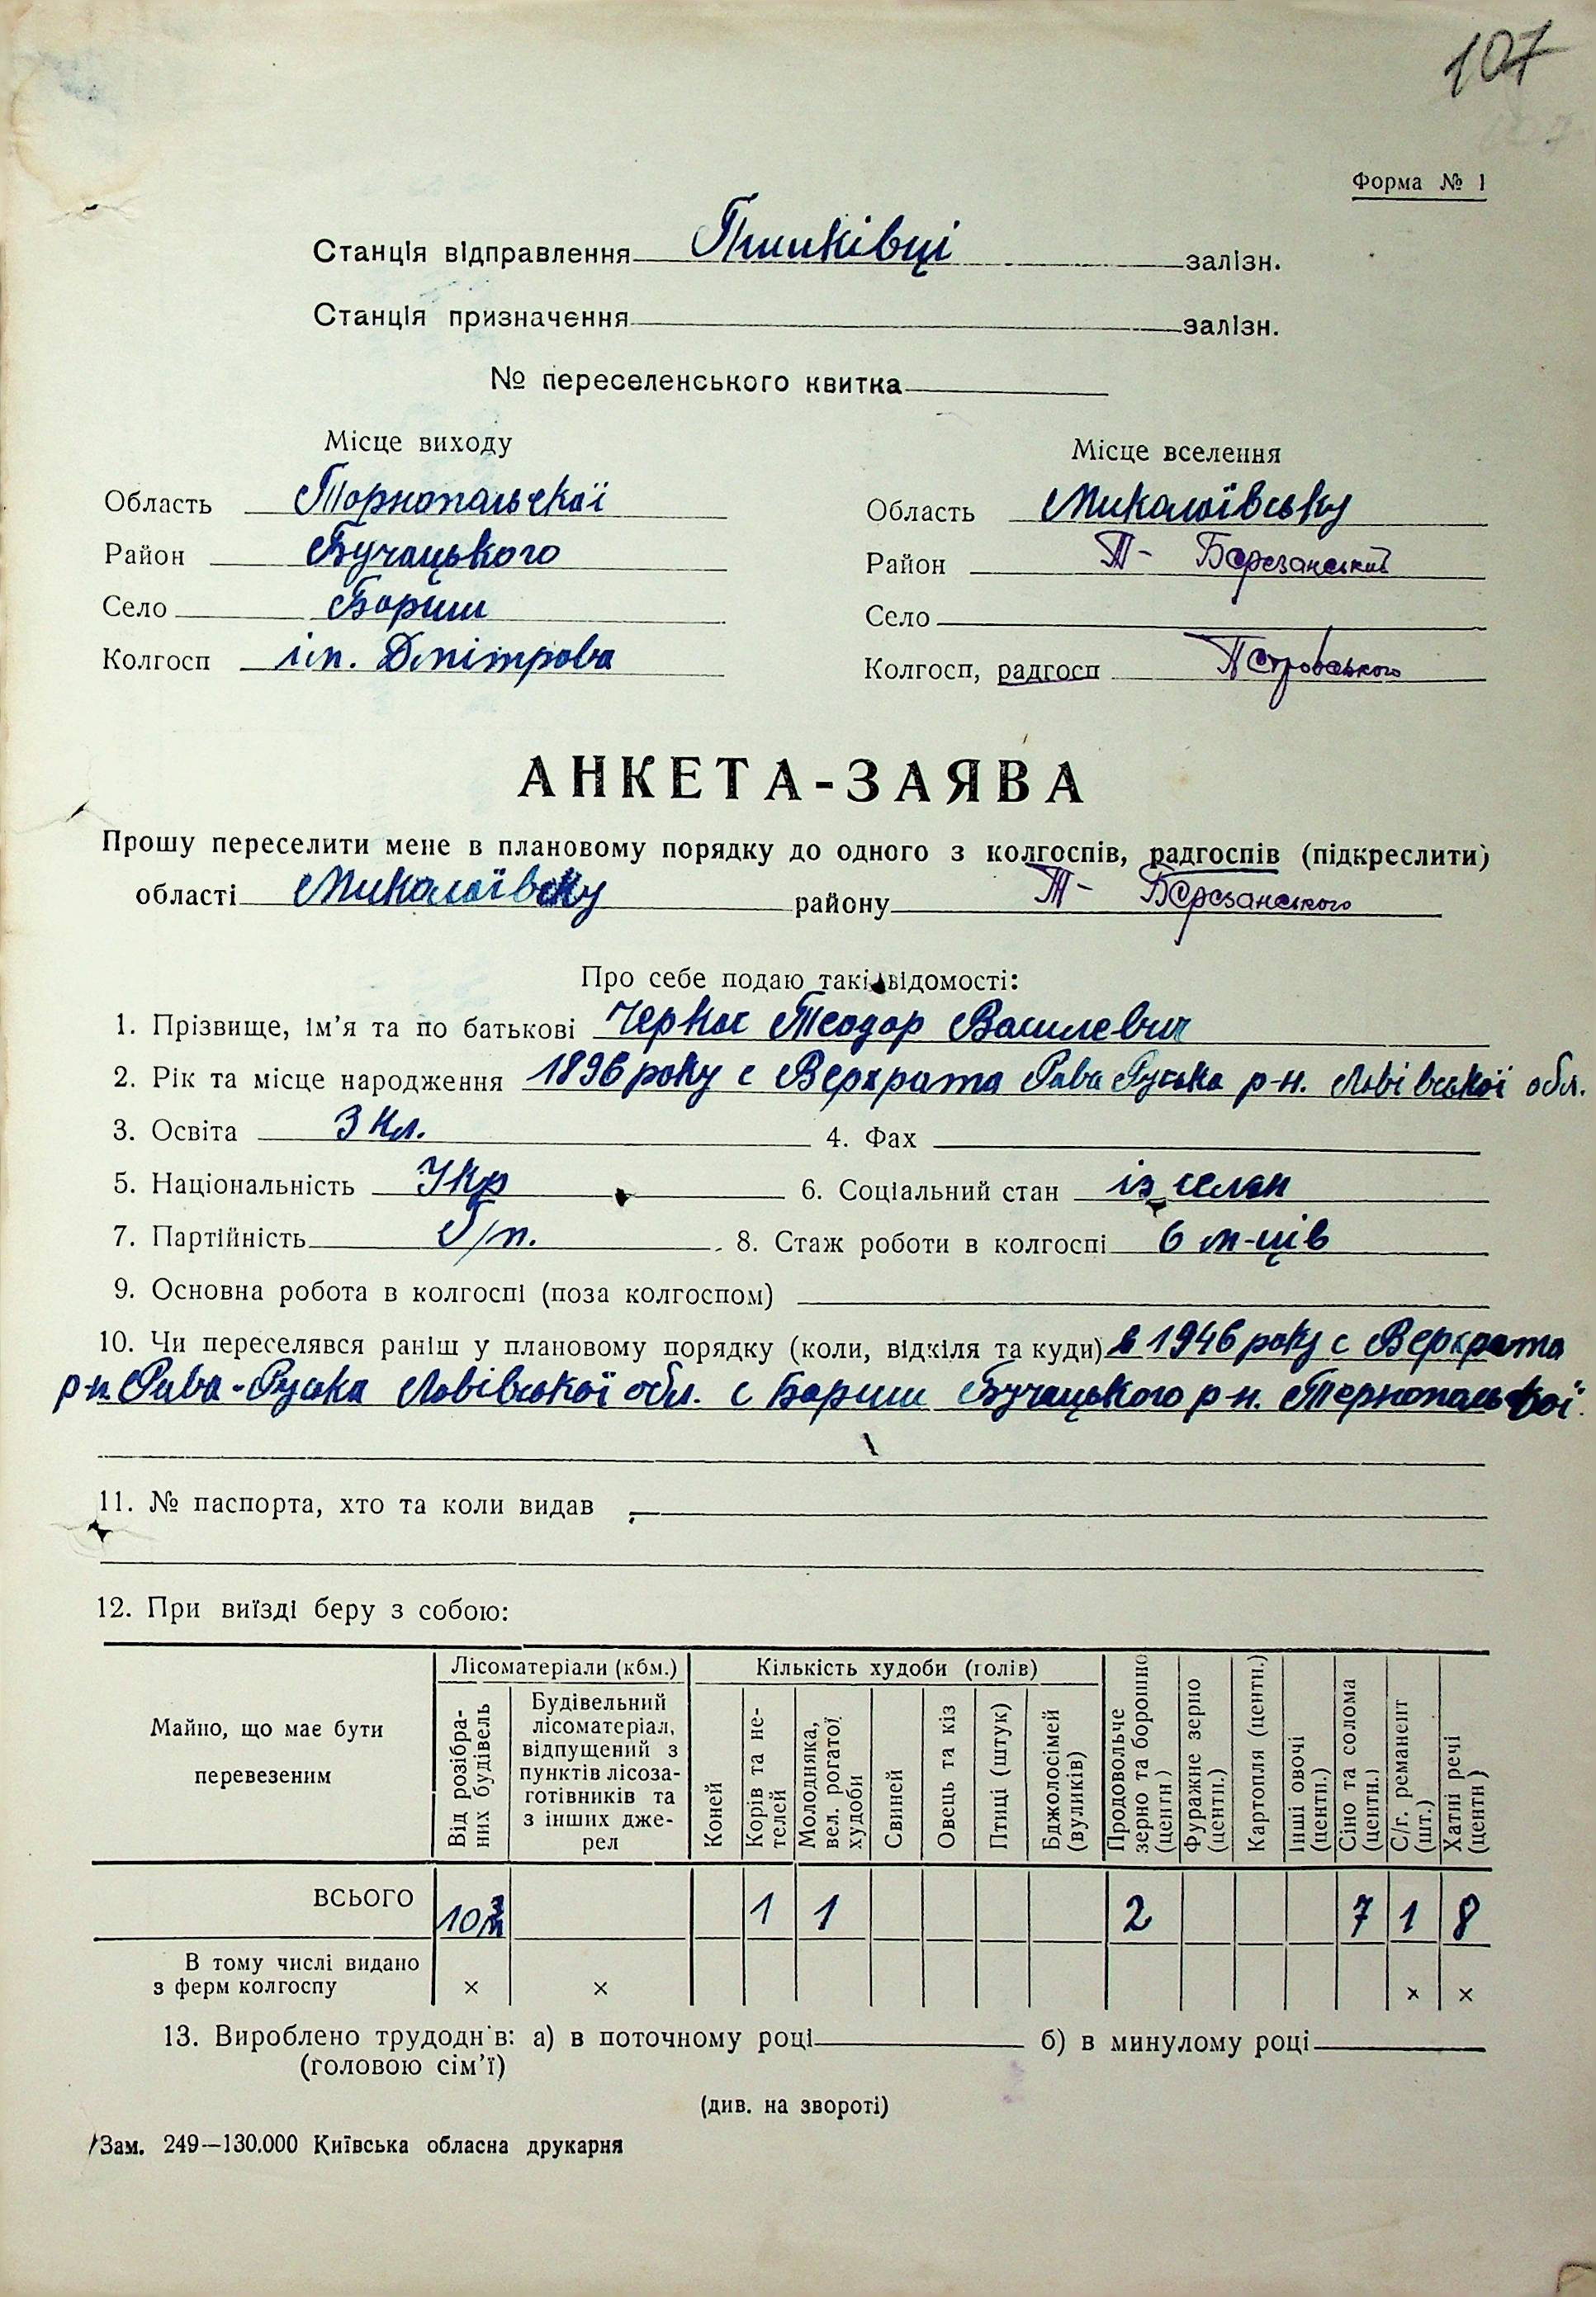 107
Форма № 1
Станція відправлення Пишківці залізн.
Станція призначення залізн.
№ переселенського квитка
Місце виходу
Місце вселення
Область Тернопольскої
Область Миколаївську
Район Бучацького
Район Т- Березанський
Село Бариш
Село
Колгосп ім. Дмітрова
Колгосп, радгосп Петровського
АНКЕТА-ЗАЯВА
Прошу переселити мене в плановому порядку до одного з колгоспів, радгоспів (підкреслити)
області Миколаївску району Т- Березанського
Про себе подаю такі відомості:
1. Прізвище, ім'я та по батькові Черкос Теодор Василевич
2. Рік та місце народження 1896 року с Верхрата Рава Руська р-н. Львівської обл.
3. Освіта 3 кл. 4. Фах
5. Національність Укр 6. Соціальний стан із селян
7. Партійність б/п. 8. Стаж роботи в колгоспі 6 м-ців
9. Основна робота в колгоспі (поза колгоспом)
10. Чи переселявся раніш у плановому порядку (коли, відкіля та куди) в 1946 року с Верхрата
р-н. Рава-Руська Львівської обл. с Бариш Бучацького р-н. Тернопольскої.
11. № паспорта, хто та коли видав
12. При виїзді беру з собою:
Майно, що має бути перевезеним
Лісоматеріали (кбм.)
Від розібраних будівель
Будівельний лісоматеріал, відпущений з пунктів лісозаготівників та з інших джерел
Кількість худоби (голів)
Коней
Корів та нетелей
Молодняка, вел. рогатої худоби
Свиней
Овець та кіз
Птиці (штук)
Бджолосімей (вуликів)
Продовольче зерно та борошно (центн)
Фуражне зерно (центн.)
Картопля (центн.)
Інші овочі (центн.)
Сіно та солома (центн.)
С/г. реманент (шт.)
Хатні речі (центн)
ВСЬОГО 10 м³ 1 1 2 7 1 8
В тому числі видано
з ферм колгоспу × × × ×
13. Вироблено трудоднів: а) в поточному році б) в минулому році
(головою сім'ї)
(див. на звороті)
Зам. 249—130.000 Київська обласна друкарня